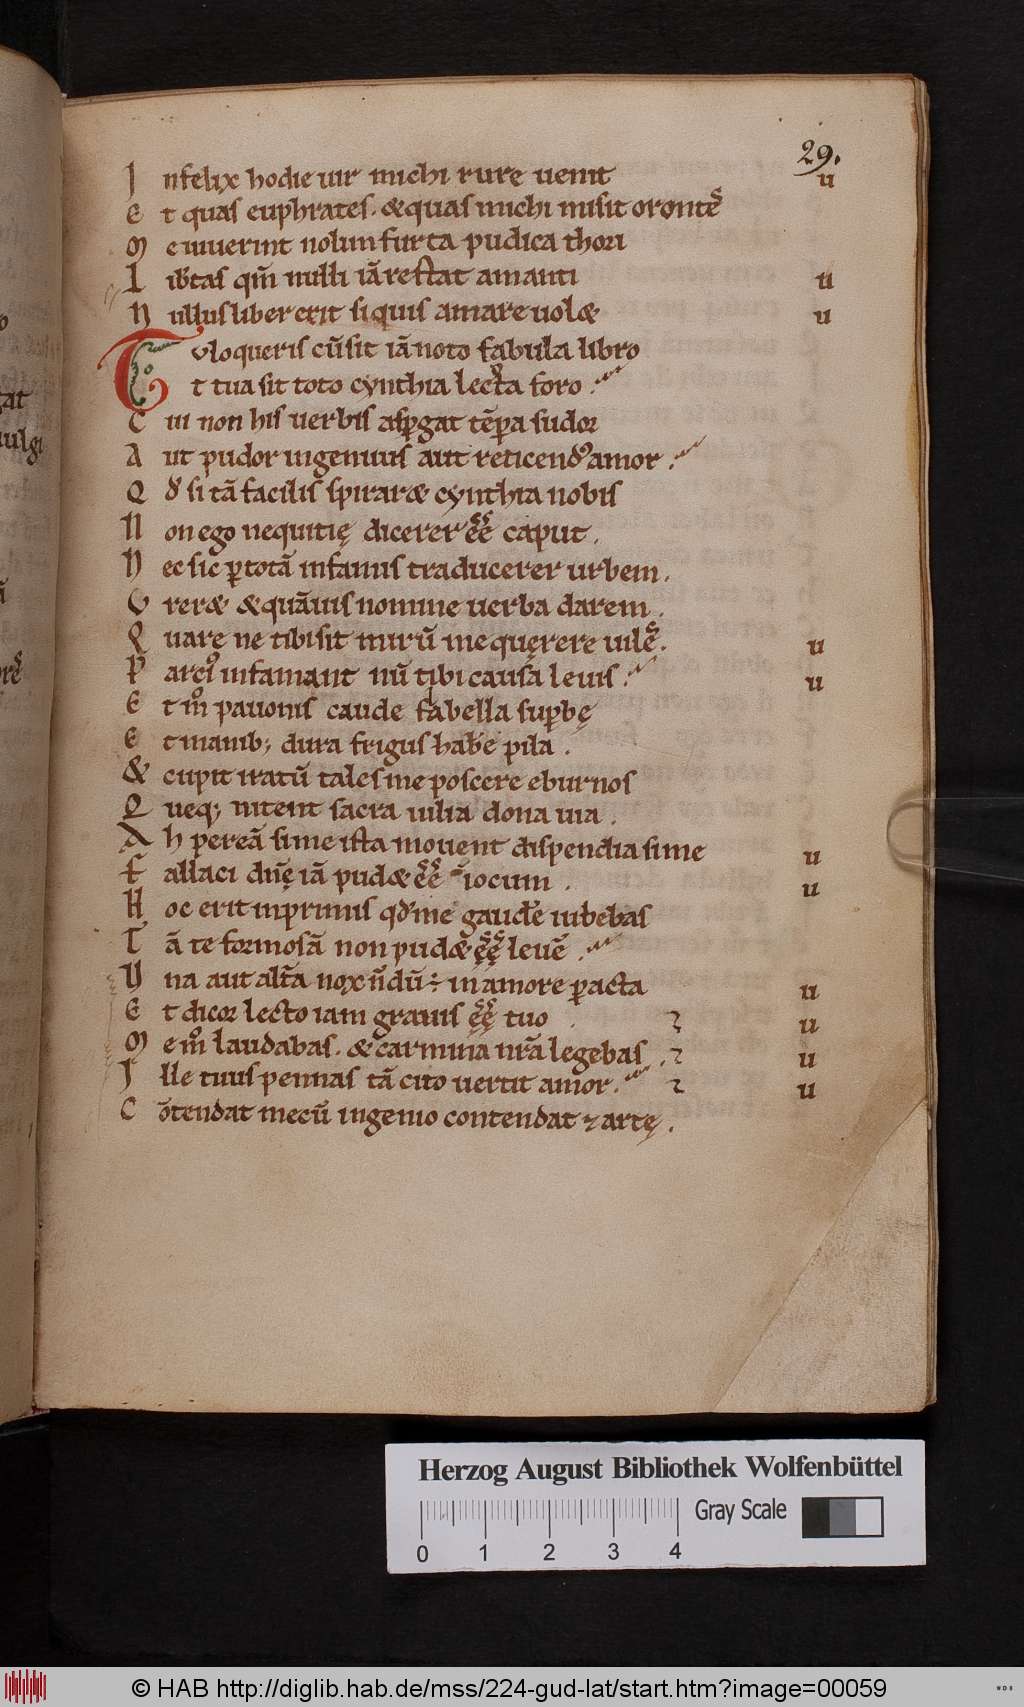 29.
I nfelix hodie uir michi rure uenit u
E t quas euphrates. &quas michi misit orontes
M e iuuerint nolim furta pudica thori
L ib̄tas qm̄ nulli iā restat amanti u
N ullus liber erit siquis amare uol& u
Tu loqueris cū sit iā noto fabula libro
E t tua sit toto cynthia lecta foro.
C ui non his uerbis asp̱gat tēp̱a sudor
A ut pudor ingenuus aut reticend᾿ amor.
Q đ si tā facilis spirar& cynthia nobis
N on ego nequitię dicerer ēē caput.
N ec sic p̱totā infamis traducerer urbem.
U rer& &quāuis nomine uerba darem.
Q uare ne tibi sit mirū me quęrere uiles. u
P arci᾿ infamant nū tibi causa leuis. u
E t m̊ pauonis caude fabella sup̱bę
E t manib; dura frigus habere pila.
& cupit iratū tales me poscere eburnos
Q ueq; nitent sacra uilia dona uia.
A h pereā si me ista mouent dispendia sime u
F allaci dn̄ę iā pud& ēē iocum. u
H oc erit inprimis qđ me gaudere iubebas
T ā te formosā non pud& ēē leuē.
U na aut alt̄a nox n̄dū ÷ in amore p̱acta u
E t dicor lecto iam grauis ēē tuo u
M e m̊ laudabas. & carmina nr̄a legebas. u
I lle tuus pennas tā cito uertit amor. u
C ōtendat mecū ingenio contendat ⁊ artę.
Herzog August Bibliothek Wolfenbüttel
Gray Scale
0 1 2 3 4
© HAB http://diglib.hab.de/mss/224-gud-lat/start.htm?image=00059